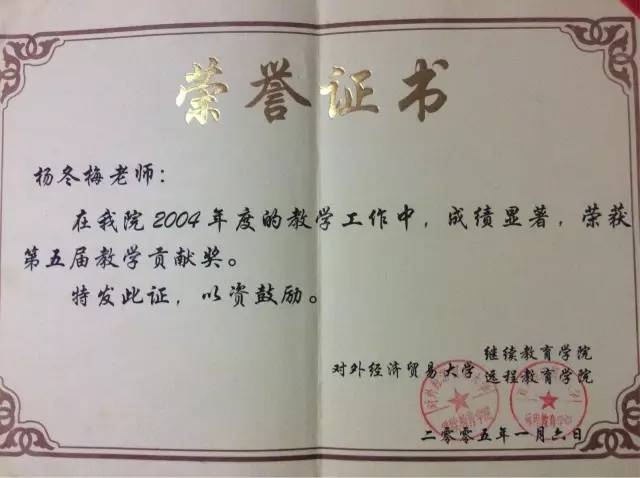 荣誉证书
杨冬梅老师：
在我院2004年度的教学工作中，成绩显著，荣获
第五届教学贡献奖。
特发此证，以资鼓励。
继续教育学院
对外经济贸易大学
远程教育学院
二零零五年一月六日